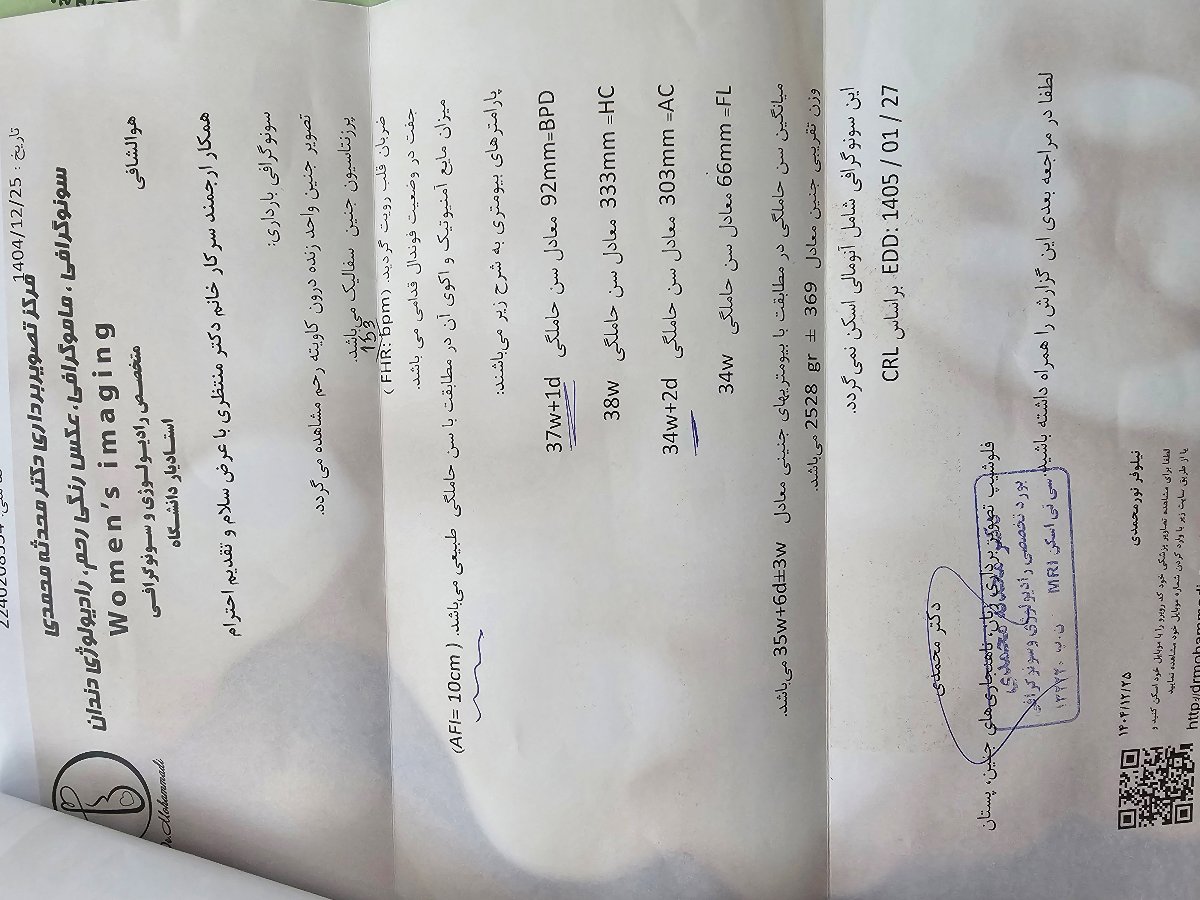 تاریخ : 1404/12/25
2240208334
مرکز تصویربرداری دکتر محدثه محمدی
سونوگرافی ، ماموگرافی، عکس رنگی رحم، رادیولوژی دندان
Women's imaging
هوالشافی
متخصص رادیولوژی و سونوگرافی
استادیار دانشگاه
Dr.Mohammadi
همکار ارجمند سرکار خانم دکتر منتظری با عرض سلام و تقدیم احترام
سونوگرافی بارداری:
تصویر جنین واحد زنده درون کاویته رحم مشاهده می‌گردد.
پرزنتاسیون جنین سفالیک می‌باشد.
ضربان قلب رویت گردید. (FHR: bpm )
153
جفت در وضعیت فوندال قدامی می باشد.
میزان مایع آمنیوتیک و اکوی آن در مطابقت با سن حاملگی طبیعی می‌باشد. (AFI= 10cm )
پارامترهای بیومتری به شرح زیر می‌باشند:
92mm=BPD معادل سن حاملگی 37w+1d
333mm =HC معادل سن حاملگی 38w
303mm =AC معادل سن حاملگی 34w+2d
66mm =FL معادل سن حاملگی 34w
میانگین سن حاملگی در مطابقت با بیومتریهای جنینی معادل 35w+6d±3w می‌باشد.
وزن تقریبی جنین معادل 2528 gr ± 369 می‌باشد.
این سونوگرافی شامل آنومالی اسکن نمی‌گردد.
EDD: 1405 / 01 / 27 براساس CRL
لطفا در مراجعه بعدی این گزارش را همراه داشته باشید.
دکتر محمدی
فلوشیپ تصویربرداری زنان، ناهنجاری‌های جنین، پستان
بورد تخصصی رادیولوژی و سونوگرافی
سی تی اسکن MRI
نیلوفر نورمحمدی
۱۴۰۴/۱۲/۲۵
لطفا برای مشاهده تصاویر پزشکی خود کد روبرو را با موبایل خود اسکن کنید و
یا از طریق سایت زیر با وارد کردن شماره موبایل خود مشاهده نمایید